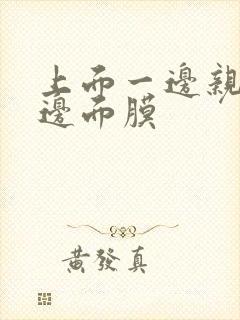 上而一邊親
邊而膜
黃發真